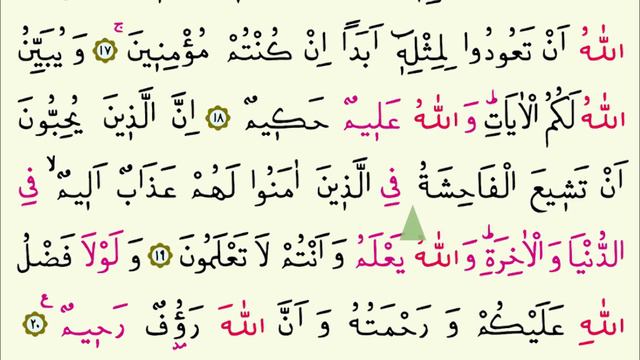 اللّٰهُ اَنْ تَعُودُوا لِمِثْلِه۪ٓ اَبَدًا اِنْ كُنْتُمْ مُؤْمِن۪ينَۚ ﴿١٧﴾ وَيُبَيِّنُ
اللّٰهُ لَكُمُ الْاٰيَاتِۜ وَاللّٰهُ عَل۪يمٌ حَك۪يمٌ ﴿١٨﴾ اِنَّ الَّذ۪ينَ يُحِبُّونَ
اَنْ تَش۪يعَ الْفَاحِشَةُ فِي الَّذ۪ينَ اٰمَنُوا لَهُمْ عَذَابٌ اَل۪يمٌۙ فِي
الدُّنْيَا وَالْاٰخِرَةِۜ وَاللّٰهُ يَعْلَمُ وَاَنْتُمْ لَا تَعْلَمُونَ ﴿١٩﴾ وَلَوْلَا فَضْلُ
اللّٰهِ عَلَيْكُمْ وَرَحْمَتُهُ وَاَنَّ اللّٰهَ رَؤُ۫فٌ رَح۪يمٌ۟ ﴿٢٠﴾ ع